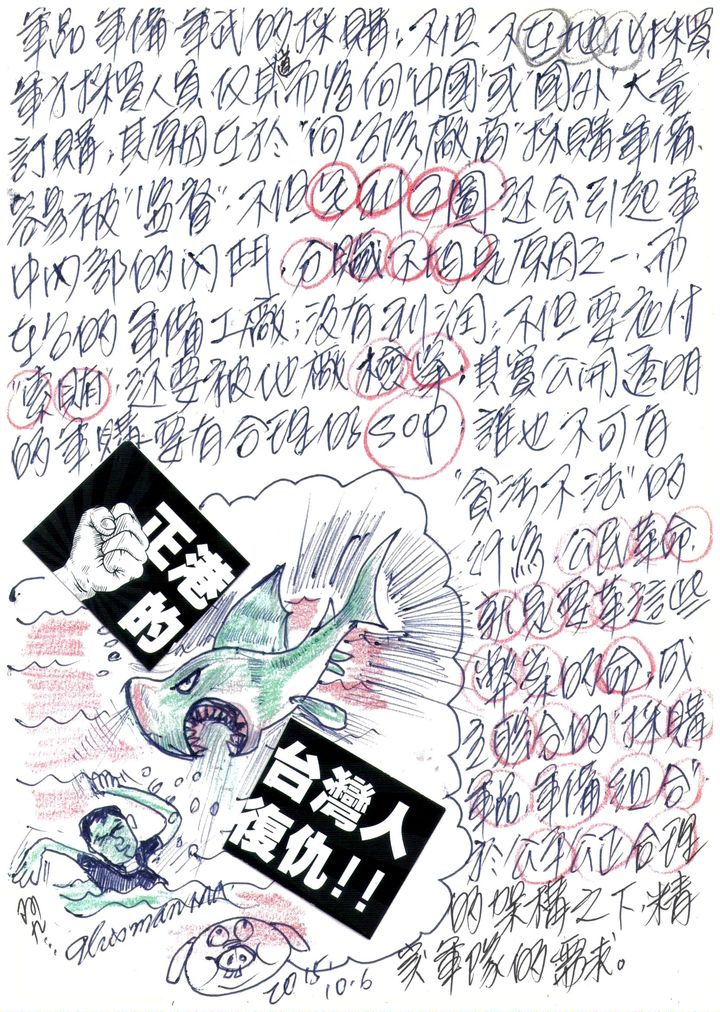 軍品軍備軍武的採購，不但不在地化採買，
軍方採買人員仅其道而為何"中國"或"國外"大量
訂購，其原因在於"向台灣廠商"採購軍備，
容易被"监督"，不但失利可圖，还会引起軍
中內部的內鬥，分賍不均是原因之一，而
在台的軍備工廠，沒有利润，不但要应付
"索賄"，还要被他廠檢举，其實公開透明
的軍購要有合理的SOP，誰也不可有
"貪污不法"的
行為，公民革命
就是要革這些
弊案的命，成
立联合的"採購
軍品軍備組合"
於公平公正合理
的架構之下，精
实軍隊的需求。
正港的
台灣人
復仇!!
2015.
10.6